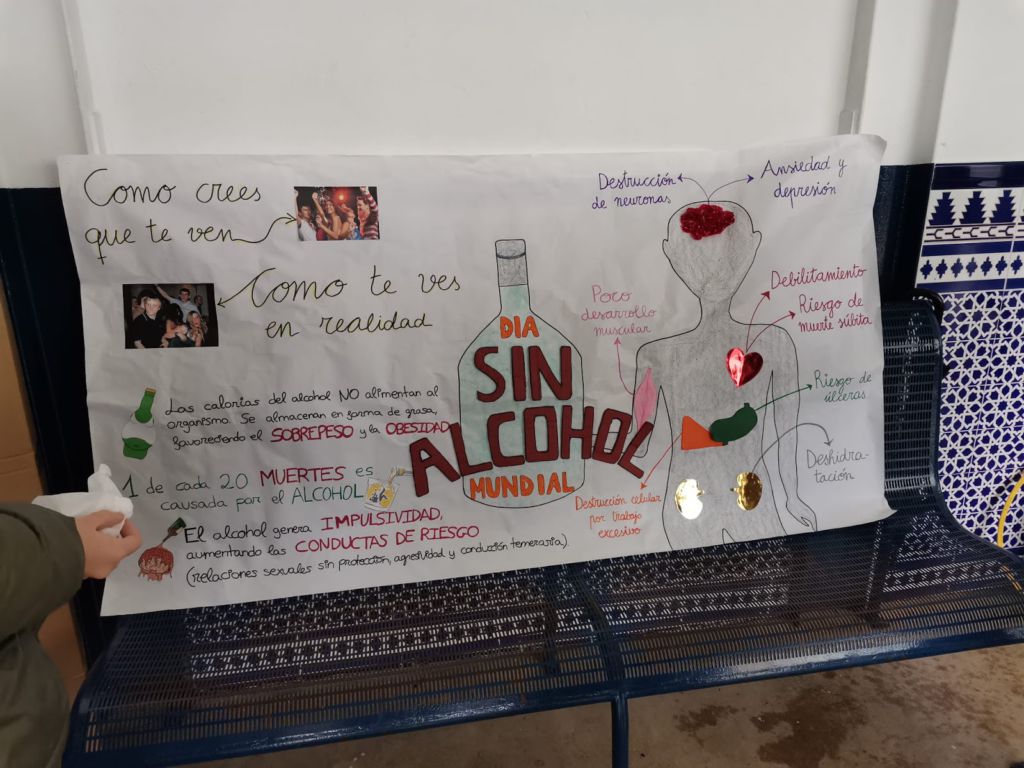 Como crees
que te ven
Como te ves
en realidad
Las calorías del alcohol NO alimentan al
organismo. Se almacenan en forma de grasa,
favoreciendo el SOBREPESO y la OBESIDAD
1 de cada 20 MUERTES es
causada por el ALCOHOL
El alcohol genera IMPULSIVIDAD,
aumentando las CONDUCTAS DE RIESGO
(relaciones sexuales sin protección, agresividad y conducción temeraria).
DIA
SIN
ALCOHOL
MUNDIAL
Destrucción
de neuronas
Ansiedad y
depresión
Poco
desarrollo
muscular
Debilitamiento
Riesgo de
muerte súbita
Riesgo de
úlceras
Deshidra-
tación
Destrucción celular
por trabajo
excesivo